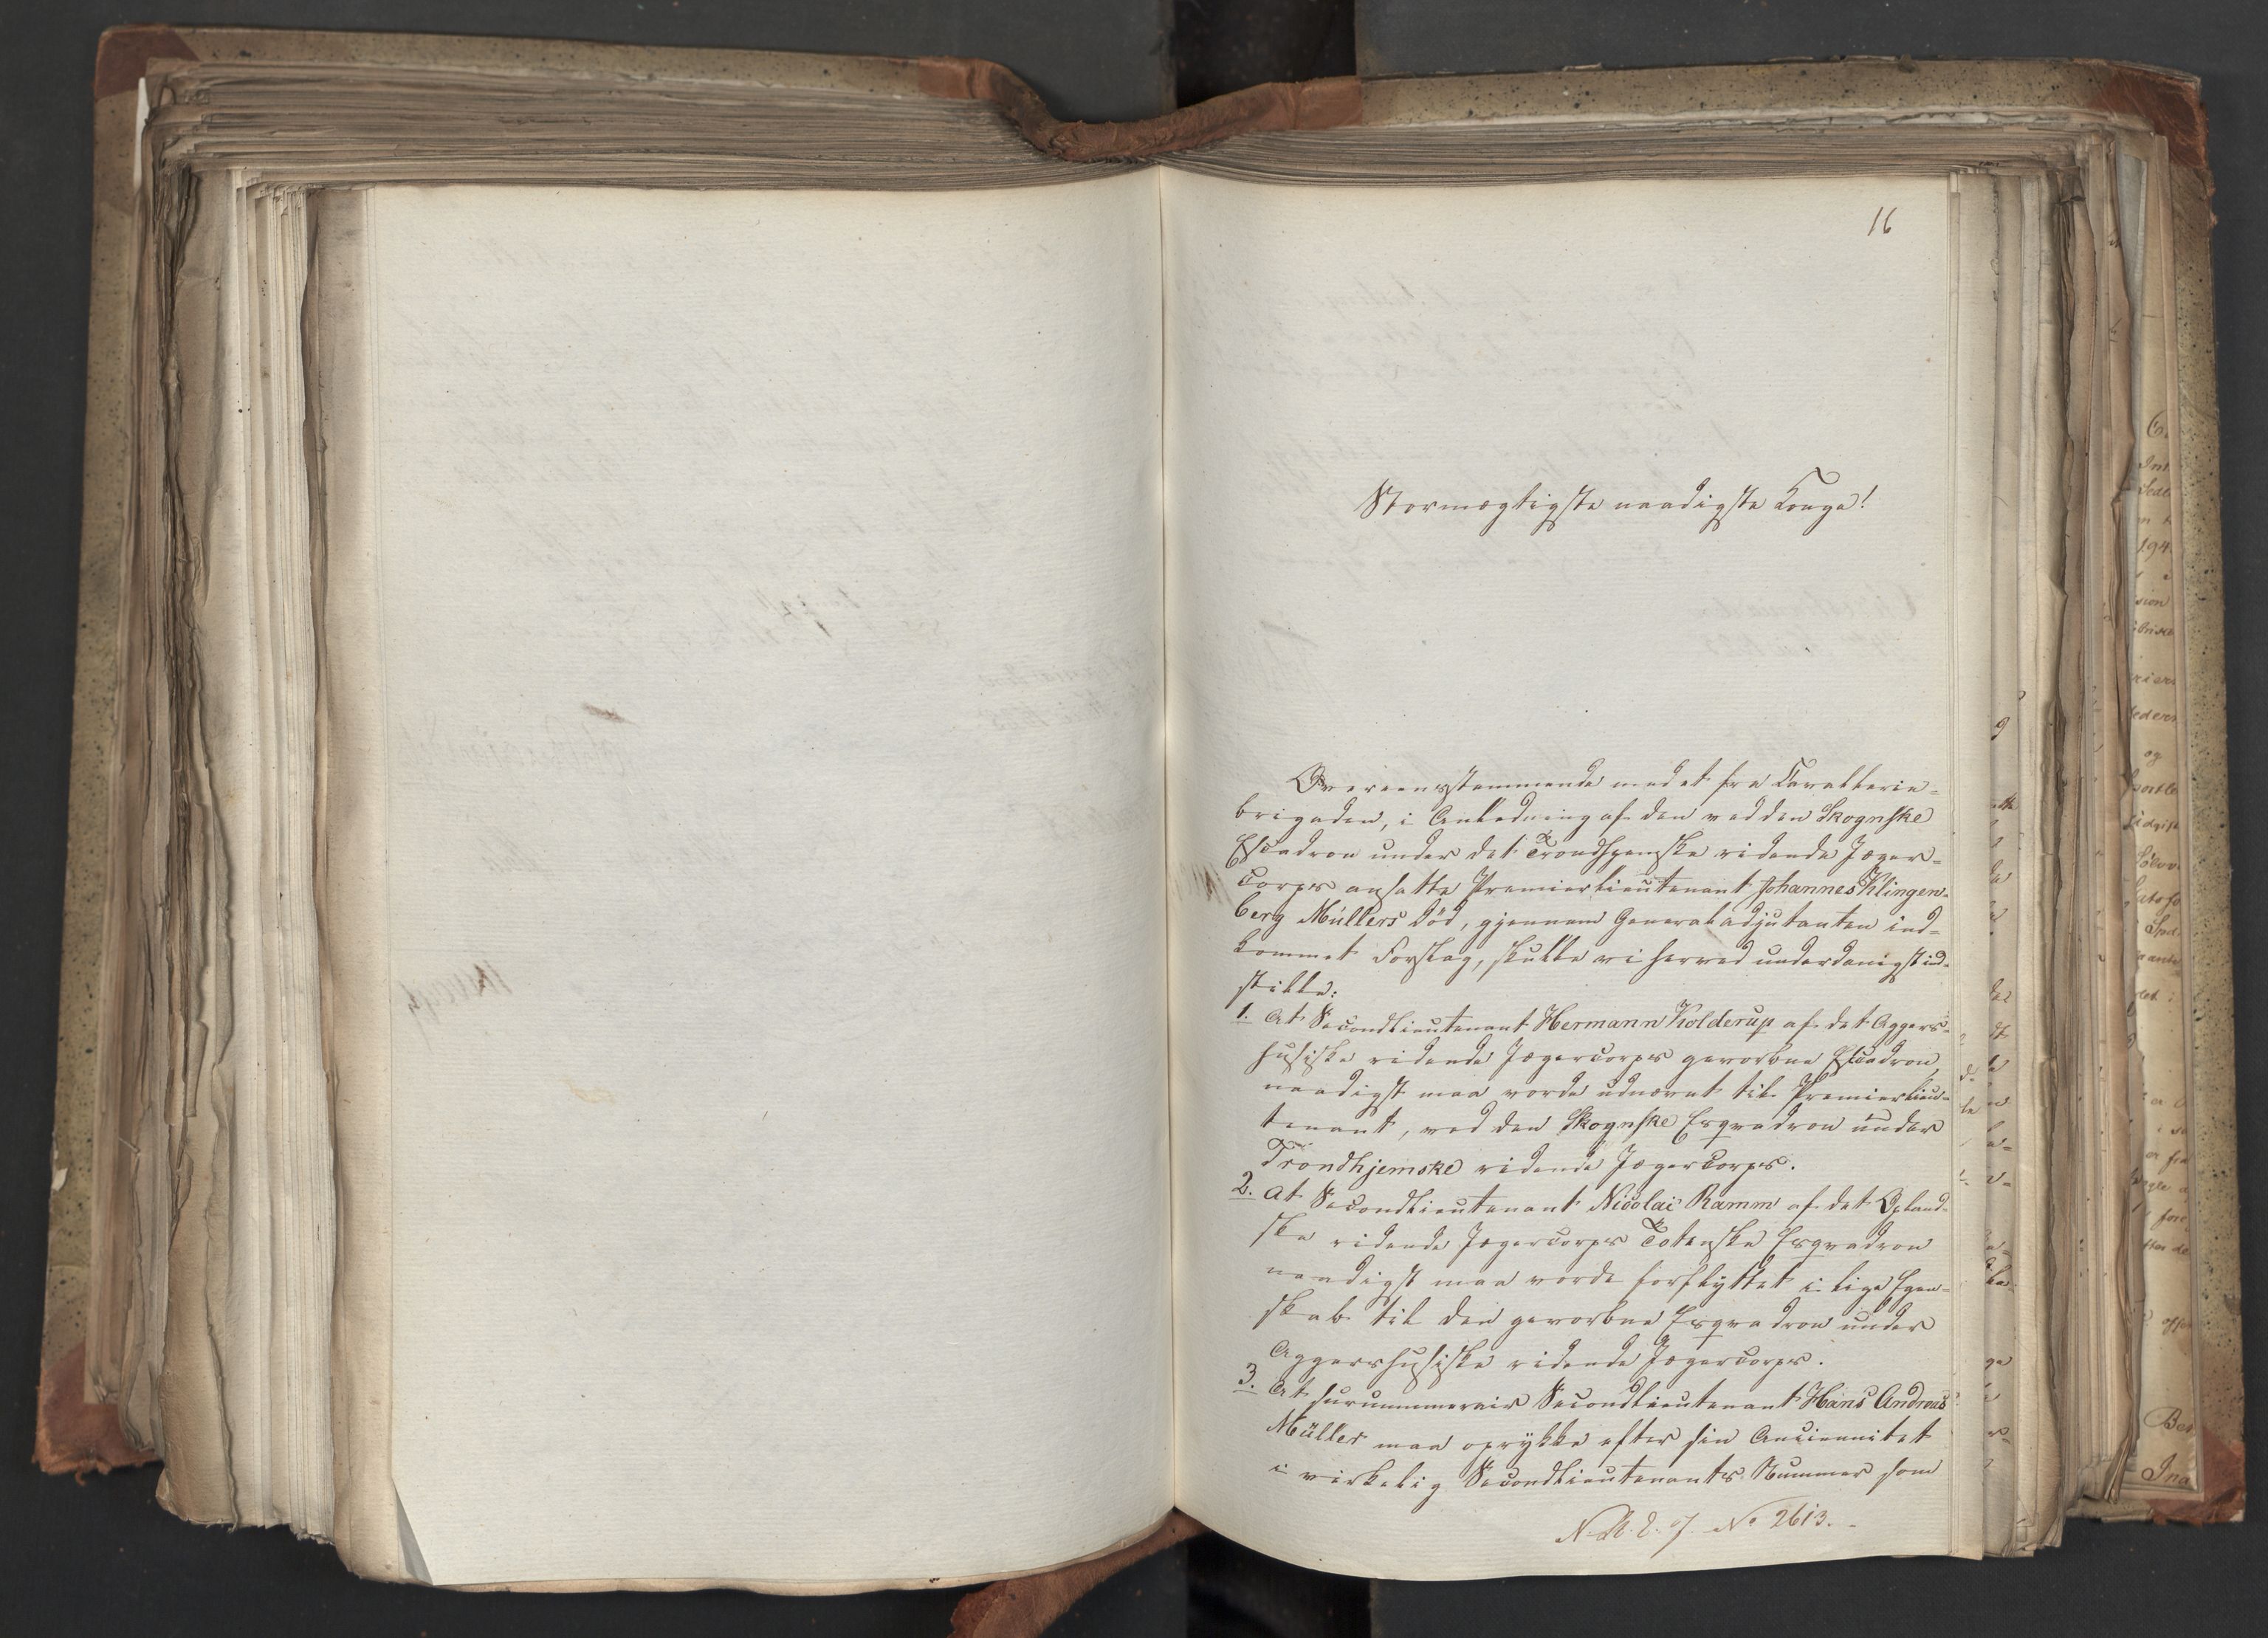 16
Stormægtigste naadigste Konge!
Overeensstemmende med et fra Cavallerie-
brigaden, i Anledning af den ved den Skognske
Escadron under det Trondhjemske ridende Jæger-
Corps ansatte Premierlieutenant Johannes Klingen-
berg Müllers Död, gjennem Generaladjutanten ind-
kommet Forslag, skulle vi herved underdanigst ind-
stille:
1. At Secondlieutenant Hermann Kolderup af det Aggers-
husiske ridende Jægercorps gevorbne Escadron,
naadigst maa vorde udnævnt til Premierlieu-
tenant, ved den Skognske Esqvadron under
Trondhjemske ridende Jæger Corps.
2. At Secondlieutenant Nicolai Ramm af det Opland-
ske ridende Jægercorps Totenske Esqvadron
naadigst maa vorde forflyttet i lige Egen-
skab til den gevorbne Esqvadron under
Aggershusiske ridende Jægercorps.
3. At surnummerair Secondlieutenant Hans Andreas
Müller maa oprykke efter sin Anciennitet
i virkelig Secondlieutenants Nummer som
No 2613.